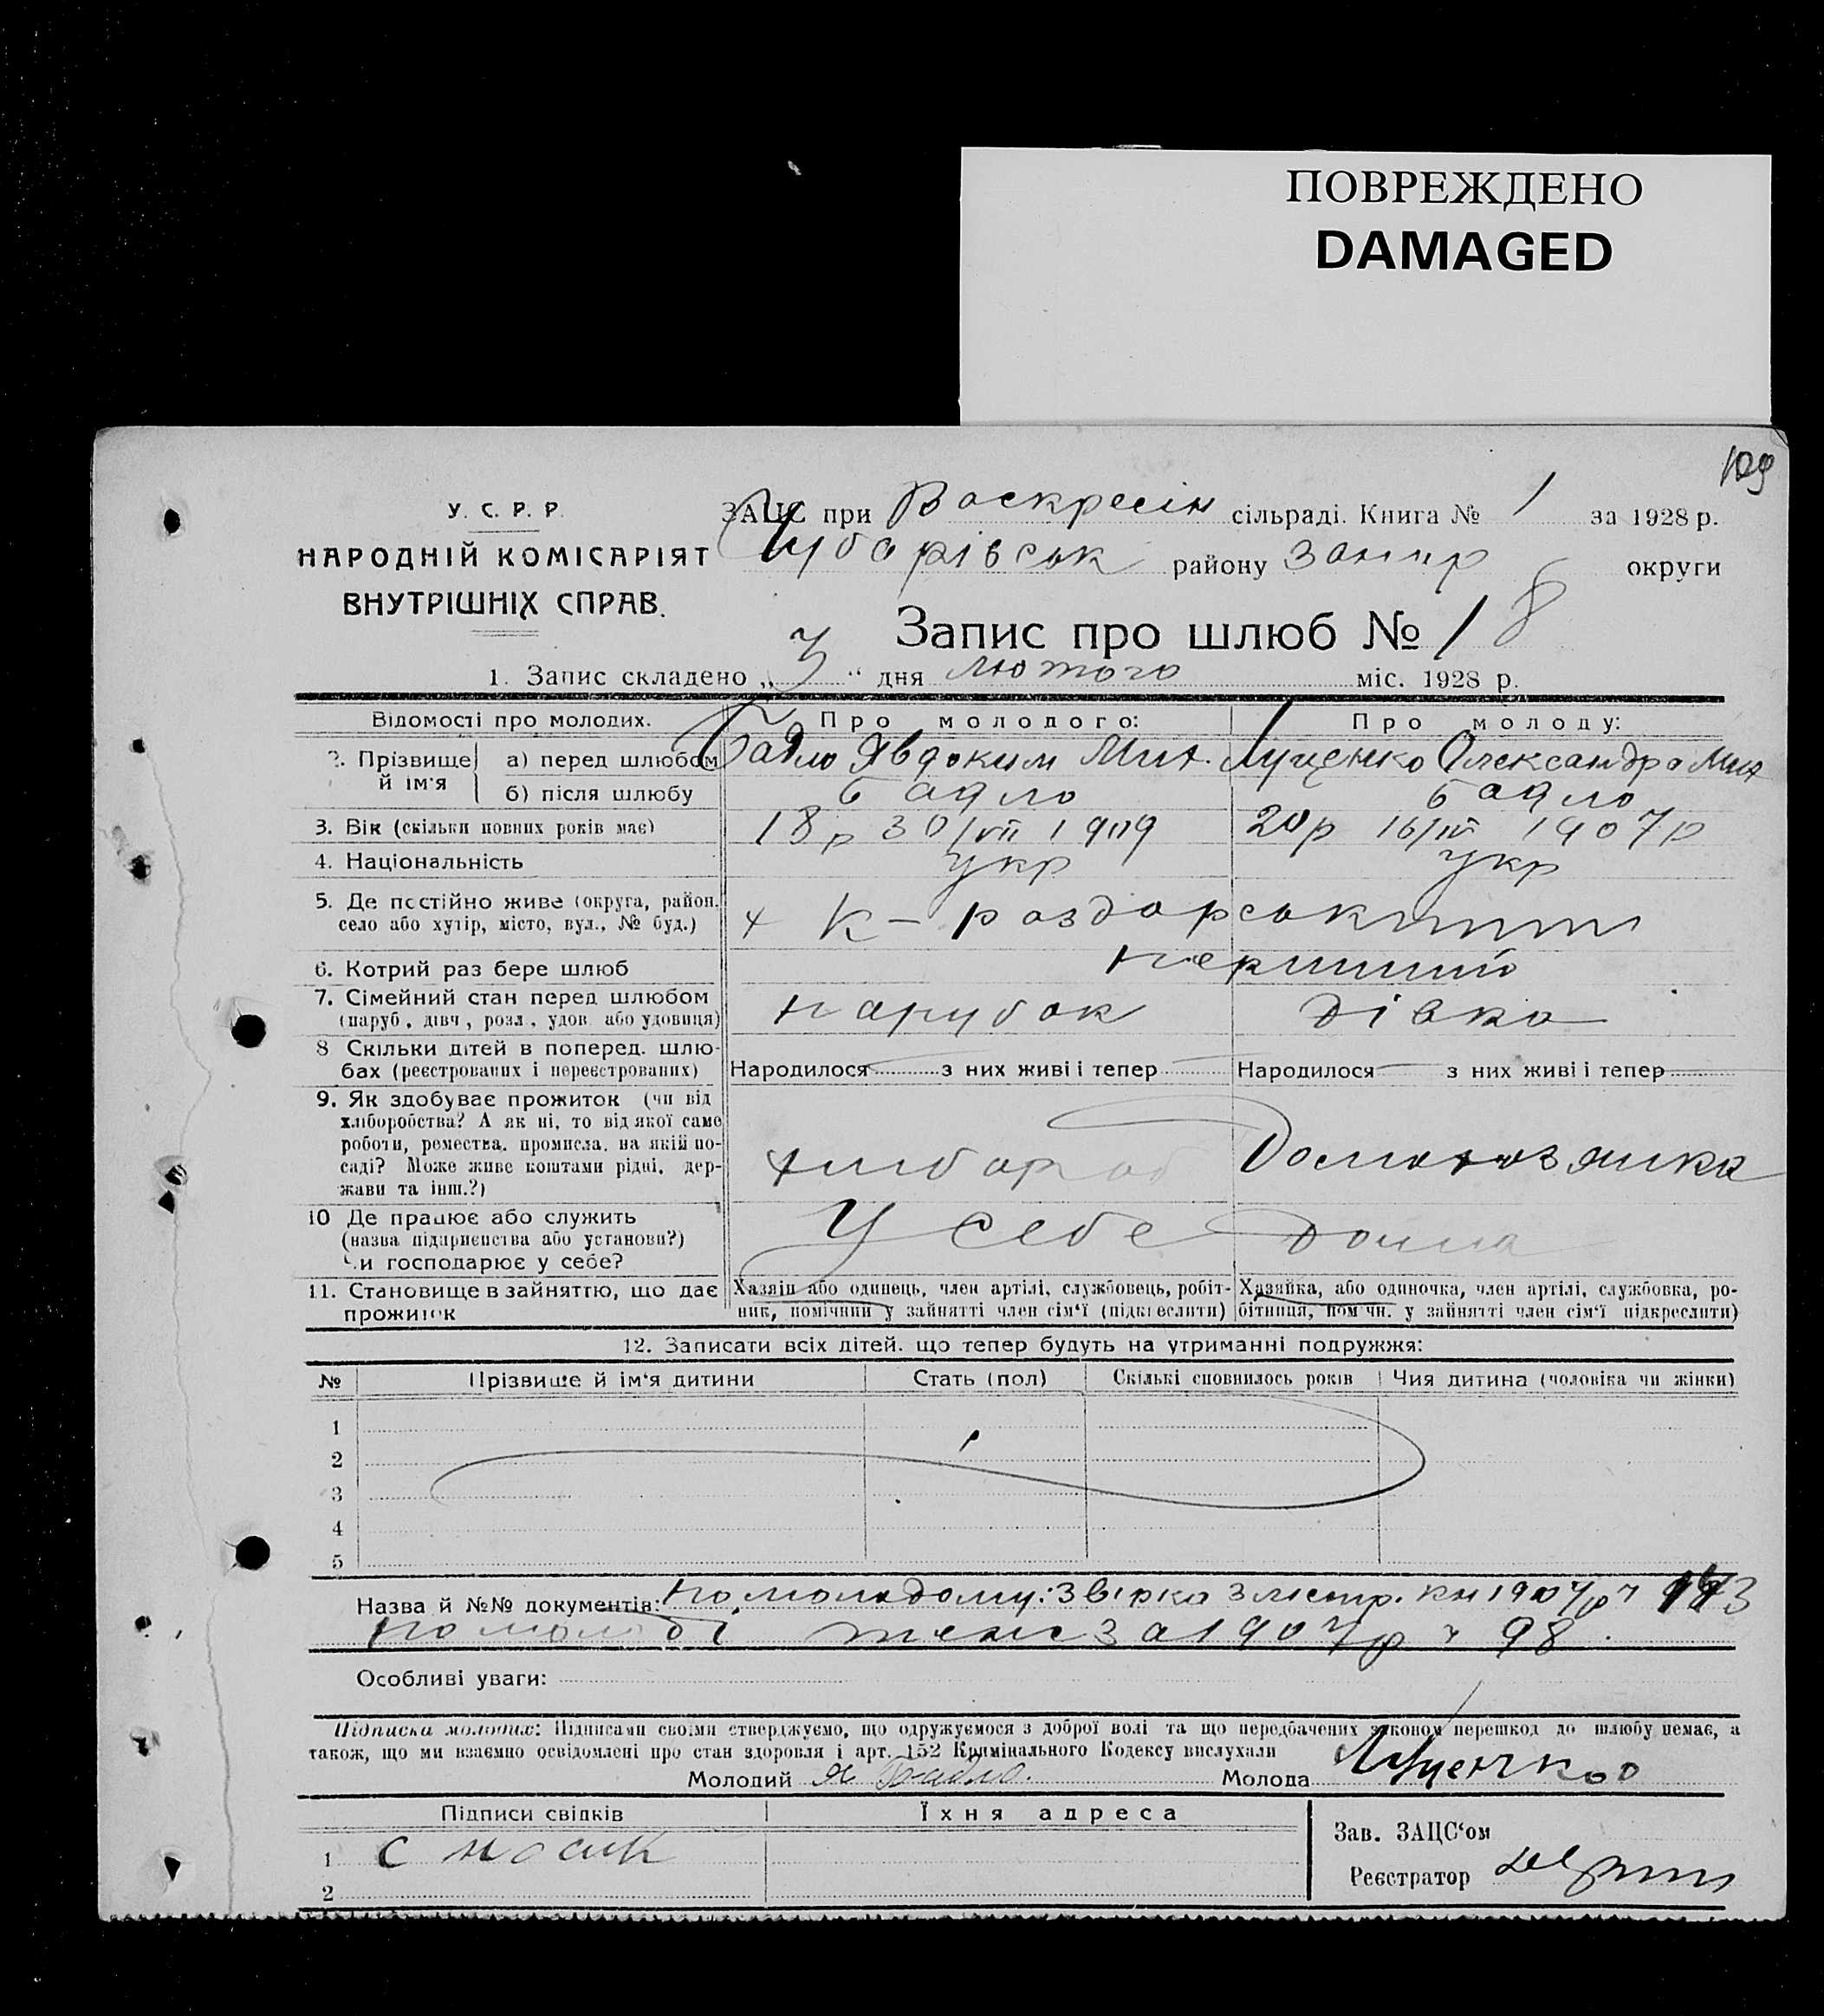 ПОВРЕЖДЕНО
DAMAGED
109
У. С. Р. Р.
НАРОДНІЙ КОМІСАРІЯТ
ВНУТРІШНІХ СПРАВ.
ЗАЦС при Воскресін сільраді. Книга № 1 за 1928 р.
Чубарівськ району Запор округи
Запис про шлюб № 18
1. Запис складено „3“ дня лютого міс. 1928 р.
Відомості про молодих. Про молодого: Про молоду:
2. Прізвище й ім'я а) перед шлюбом Бадло Явдоким Мит. Луценко Олександра Мит
б) після шлюбу Бадло Бадло
3. Вік (скільки повних років має) 18 р 30/VII 1909 20р 16/IV 1907р
4. Національність укр укр
5. Де постійно живе (округа, район,
село або хутір, місто, вул., № буд.) х К-роздорський
6. Котрий раз бере шлюб перший
7. Сімейний стан перед шлюбом
(паруб., дівч., розл., удов. або удовиця) парубок дівка
8 Скільки дітей в поперед. шлю-
бах (реєстрованих і нереєстрованих) Народилося з них живі і тепер Народилося з них живі і тепер
9. Як здобуває прожиток (чи від
хліборобства? А як ні, то від якої саме
роботи, ремества, промисла, на якій по-
саді? Може живе коштами рідні, дер-
жави та інш.?) хлібороб
10 Де працює або служить
(назва підприємства або установи?)
Чи господарює у себе? У себе дома
11. Становище в зайняттю, що дає
прожиток
Хазяїн або одинець, член артілі, службовець, робіт-
ник, помічний у зайнятті член сім'ї (підкреслити)
Хазяйка, або одиночка, член артілі, службовка, ро-
бітниця, пом чн. у зайнятті член сім'ї підкреслити)
12. Записати всіх дітей, що тепер будуть на утриманні подружжя:
№ Прізвище й ім'я дитини Стать (пол) Скількі сповнилось років Чия дитина (чоловіка чи жінки)
1
2
3
4
5
Назва й №№ документів: по молодому: звірка з метр. кн
по молоді теж за 1907р ч 98
Особливі уваги:
Підписка молодих: Підписами своїми стверджуємо, що одружуємося з доброї волі та що передбачених законом перешкод до шлюбу немає, а
також, що ми взаємно освідомлені про стан здоровля і арт. 152 Кримінального Кодексу вислухали
Молодий Я Бадло. Молода Луценко
Підписи свідків Їхня адреса
Зав. ЗАЦС'ом
1 С Носик
Реєстратор
2